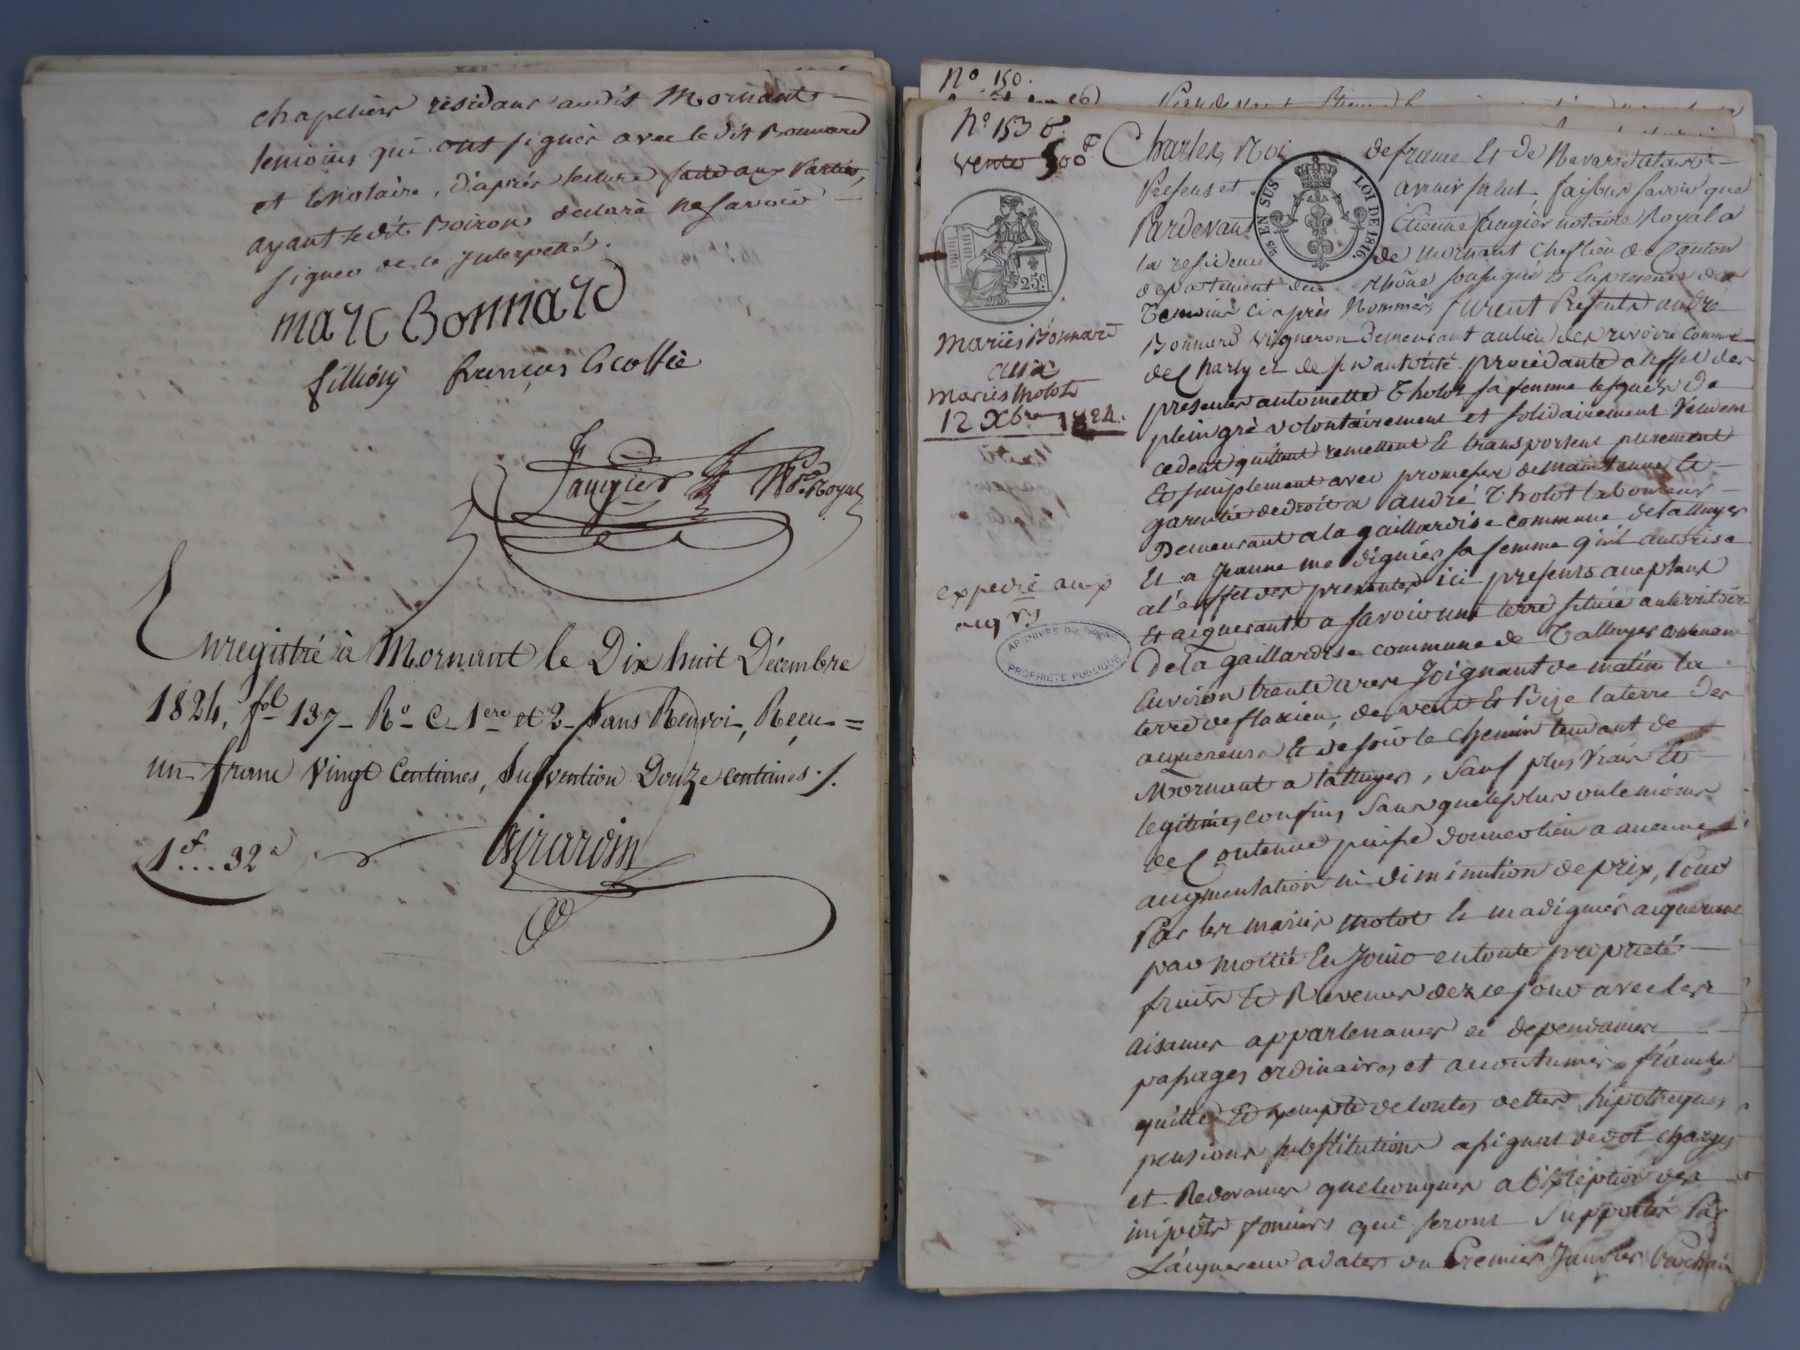 chapeliers résidans audit Mornant
temoins qui ont signés avec le dit Bonnard
et le notaire, d'après lecture faite aux Parties,
ayant ledit Boiron declaré ne savoir
signer de ce Interpellé.
marc Bonnard
fillion françois Escoffié
Faugier Nre Royal
Enregistré à Mornant le Dix huit Décembre
1824, fol 137 Ro C 1ere et 2 Sans Renvoi, Reçu
un franc Vingt Centimes, Subvention Douze centimes ./.
1f...32c
Girardin
No 150.
No 153
vente 500
EN SUS
LOI DE 1816.
25c
Mariés Bonnard
aux
Mariés tholot
12 Xbre 1824.
expedié aux
aqrs
ARCHIVES DU RHONE
PROPRIETE PUBLIQUE
Charles, Roi de france Et de Navarre a tous
Presens et avenir salut, faisons savoir que
Pardevant Etienne faugier notaire Royal a
la residence de Mornant chef lieu de Canton
departement du Rhône soussigné Et En presence des
Temoins ci après Nommés furent Presents andré
Bonnard vigneron Demeurant au lieu des rivoire Commune
de Charly et de son autorité procedante a l'effet des
presentes antoinette tholot sa femme lesquels de
plein gré volontairement et solidairement Vendent
cedent quittent remettent Et transportent purement
Et simplement avec promesse de maintenue Et
garentie de droit a andré tholot laboureur
Demeurant a la gaillardise commune de tallnyes
Et a Jeanne madignier sa femme qu'il autorise
a l'effet des presentes ici presents aceptans
Et aiquerants a savoir une terre située au territoire
De la gaillardise commune de tallnyes contenant
Environ trente ares Joignant de matin la
terre de flaxieu, de vent Et Bize la terre des
aiquereurs Et de soir le chemin tendant de
Mornant a tallnyes, Sauf plus Vrais Et
legitimes confins, sans que le plus ou le moins
de Contenue puisse donner lieu a aucune
augmentation ni diminution de prix, Pour
Par les mariés tholot Et madignier aiquereurs
par moitié En Jouir en toute proprieté
fruits Et Revenus dez ce jour avec les
aisances appartenances et dependances
passages ordinaires et acoutumés, franche
quitte Et exempte de toutes dettes, hipotheques
pensions substitutions assignat de dot charges
et Redevances quelconques a l'Exception des
impôts fonciers qui seront Supportés Par
L'aiquereur a dater du Premier Janvier Prochain